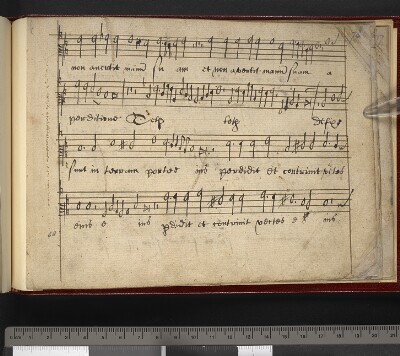 non avertit manum su am et non avertit manum suam a
perditione Teth teth defixe
sunt in terram portes eius perdidit et contrivit vectes
eius e ius pdidit et contrivit vectes e ius